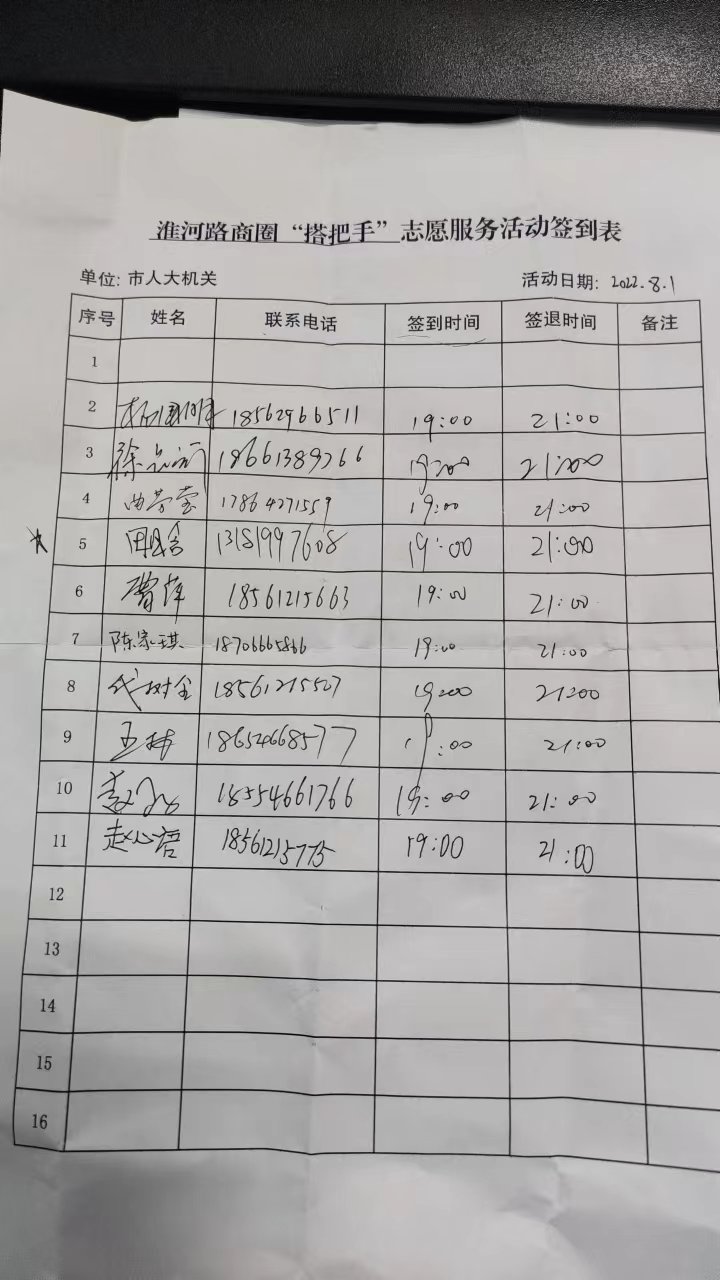 淮河路商圈“搭把手”志愿服务活动签到表
单位: 市人大机关 活动日期: 2022.8.1
序号 姓名 联系电话 签到时间 签退时间 备注
1
2 18562966511 19:00 21:00
3 徐 18661389266 19:00 21:00
4 曲芳莹 17864271559 19:00 21:00
5 田 13181997608 19:00 21:00
6 曹萍 18561215663 19:00 21:00
7 陈家琪 18706665866 19:00 21:00
8 代树全 18561215507 19:00 21:00
9 王林 18654668577 19:00 21:00
10 李 18554661766 19:00 21:00
11 赵心语 18561215775 19:00 21:00
12
13
14
15
16